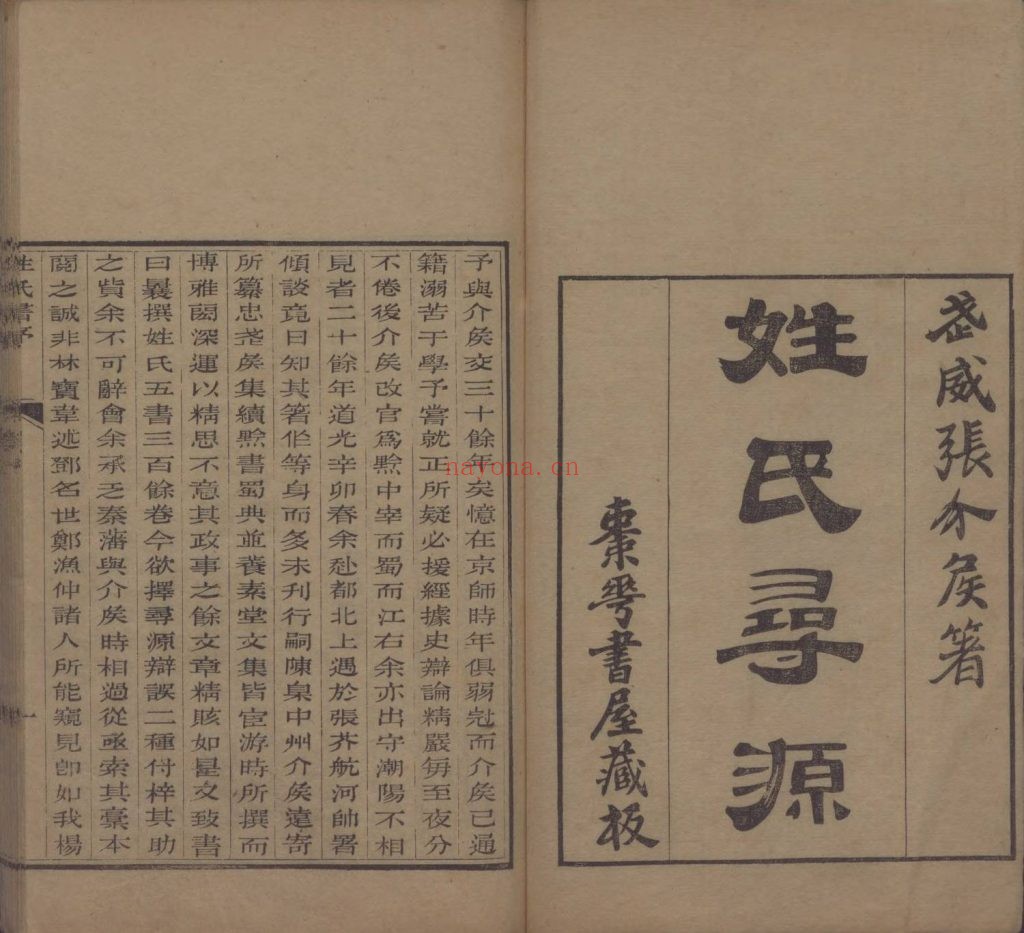 武威張介矦箸
姓氏尋源
棗雩書屋藏板
予與介矦交三十餘年矣憶在京師時年俱弱冠而介矦已通
籍溺苦于學予嘗就正所疑必援經據史辯論精嚴每至夜分
不倦後介矦改官為黔中宰而蜀而江右余亦出守潮陽不相
見者二十餘年道光辛卯春余赴都北上遇於張芥航河帥署
傾談竟日知其箸作等身而多未刊行嗣陳臬中州介矦遠寄
所纂忠烾矦集續黔書蜀典並養素堂文集皆宦游時所撰而
博雅閎深運以精思不意其政事之餘文章精賅如是又致書
曰曩撰姓氏五書三百餘卷今欲擇尋源辯誤二種付梓其助
之貲余不可辭會余承乏秦藩與介矦時相過從亟索其稾本
閱之誠非林寶韋述鄧名世鄭漁仲諸人所能窺見卽如我楊
姓氏書序
一
nayona.cn